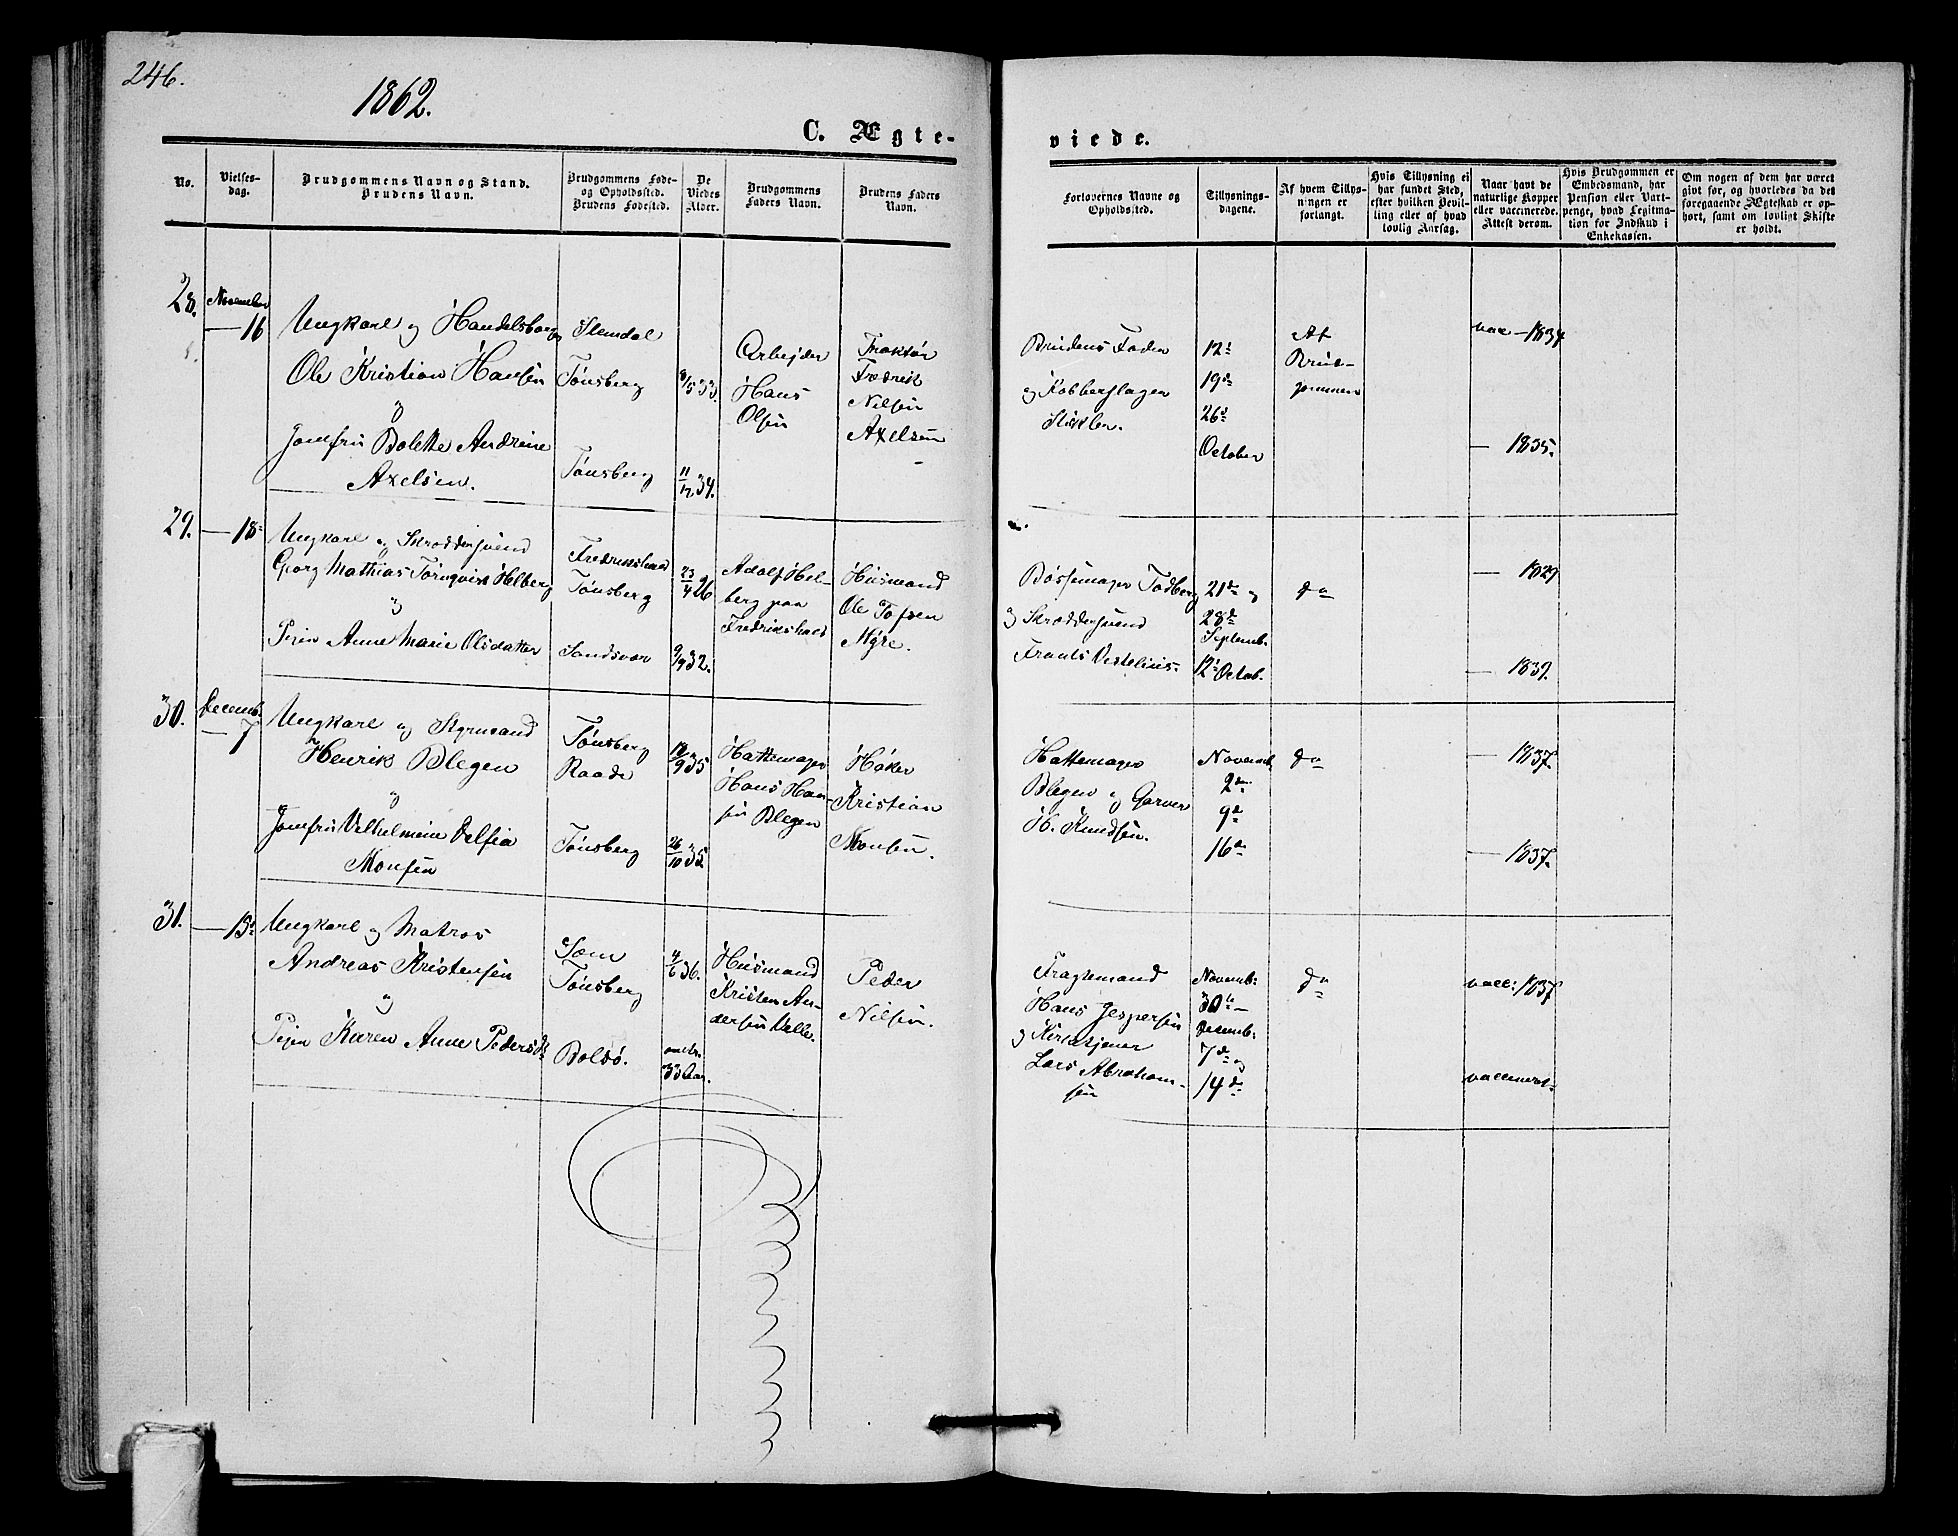 246.
1862.
C. Ægte-
viede.
No.
Vielses-
dag.
Brudgommens Navn og Stand.
Brudens Navn.
Brudgommens Føde-
og Opholdssted.
Brudens Fødested.
De
Viedes
Alder.
Brudgommens
Faders Navn.
Brudens Faders
Navn.
Forlovernes Navne og
Opholdssted.
Tillysnings-
dagene.
Af hvem Tillys-
ningen er
forlangt.
Hvis Tillysning ei
har fundet Sted,
efter hvilken Bevil-
ling eller af hvad
lovlig Aarsag.
Naar havt de
naturlige Kopper
eller vaccinerede.
Attest derom.
Hvis Brudgommen er
Embedsmand, har
Pension eller Vart-
penge, hvad Legitima-
tion for Indskud i
Enkekassen.
Om nogen af dem har været
gift før, og hvorledes da det
foregaaende Ægteskab er op-
hørt, samt om lovligt Skifte
er holdt.
28.
November
— 16
Ungkarl og Handelsborger
Ole Kristian Hansen
og
Jomfru Bolette Andrine
Axelsen.
Slemdal
Tønsberg
Tønsberg
8/5 33.
11/12 34.
Arbejder
Hans
Olsen
Fredrik
Nilsen
Axelsen
Brudens Fader
og Kobberslager
12te
19de
26de
October
Af
Brud-
gommen
vacc — 1834
— 1835.
29.
— 18
Ungkarl og Skrædersvend
Georg Mathias Tørnqvist Helberg
og
Anne Marie Olsdatter
Fredrikshald
Tønsberg
Sandsvær
23/4 26
9/9 32.
Adolf Hel-
berg paa
Fredrikshald
Husmand
Ole Tofsen
Myre.
Bøssemager Fodberg
og Skræddersvend
21de og
28de
Septemb.
12te Octob.
do
— 1829
— 1839.
30.
Decemb.
— 7
Ungkarl og Styrmand
Henrik Blegen
og
Jomfru Vilhelmine Delfia
Monsen
Tønsberg
Raade
Tønsberg
18/9 35
26/10 35.
Hattemager
Hans Han-
sen Blegen
Høker
Kristian
Monsen.
Hattemager
Blegen og Garver
H. Knudsen.
Novemb.
2de
9de
16de
do
— 1837.
— 1837.
31.
— 15
Ungkarl og Matros
Andreas Kristensen
og
Pigen Karen Anne Pedersdt
Sæm
Tønsberg
Bolsø.
4/6 36.
omtr.
33 Aar.
Husmand
Kristen An-
dersen
Peder
Nilsen.
Fragtemand
Hans Jespersen
og Kirketjener
Lars Abraham-
sen
Novemb:
30te
Decemb:
7de og
14de
do
vacc: 1837
vaccineret